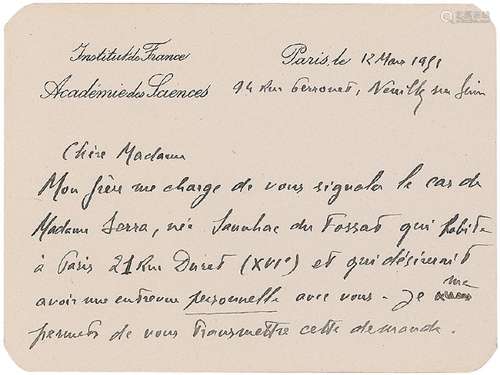 Institut de France
Académie des Sciences
Paris, le 12 Mars 1951
94 Rue Perronet, Neuilly sur Seine
Chère Madame
Mon frère me charge de vous signaler le cas de
Madame Serra, née Saunhac du Fossat qui habite
à Paris 21 Rue Duret (XVIe) et qui désirerait
avoir une entrevue personnelle avec vous. Je me
permets de vous transmettre cette demande.